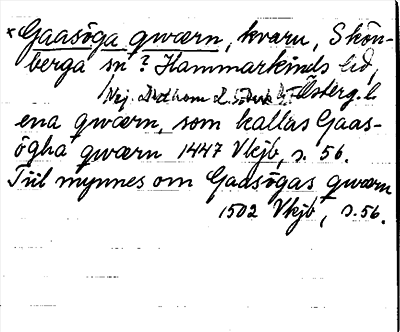 *Gaasöga qwærn, kvarn, Skön-
berga sn? Hammarkinds hd,
Nej. Dod hom L. Söderk. Älsberg. l
ena qwærn, som kallas Gaas-
ögha qwærn 1447 Vkjb, s. 56.
Tiil mynnes om Gaasögas qwærn
1502 Vkjb, s. 56.